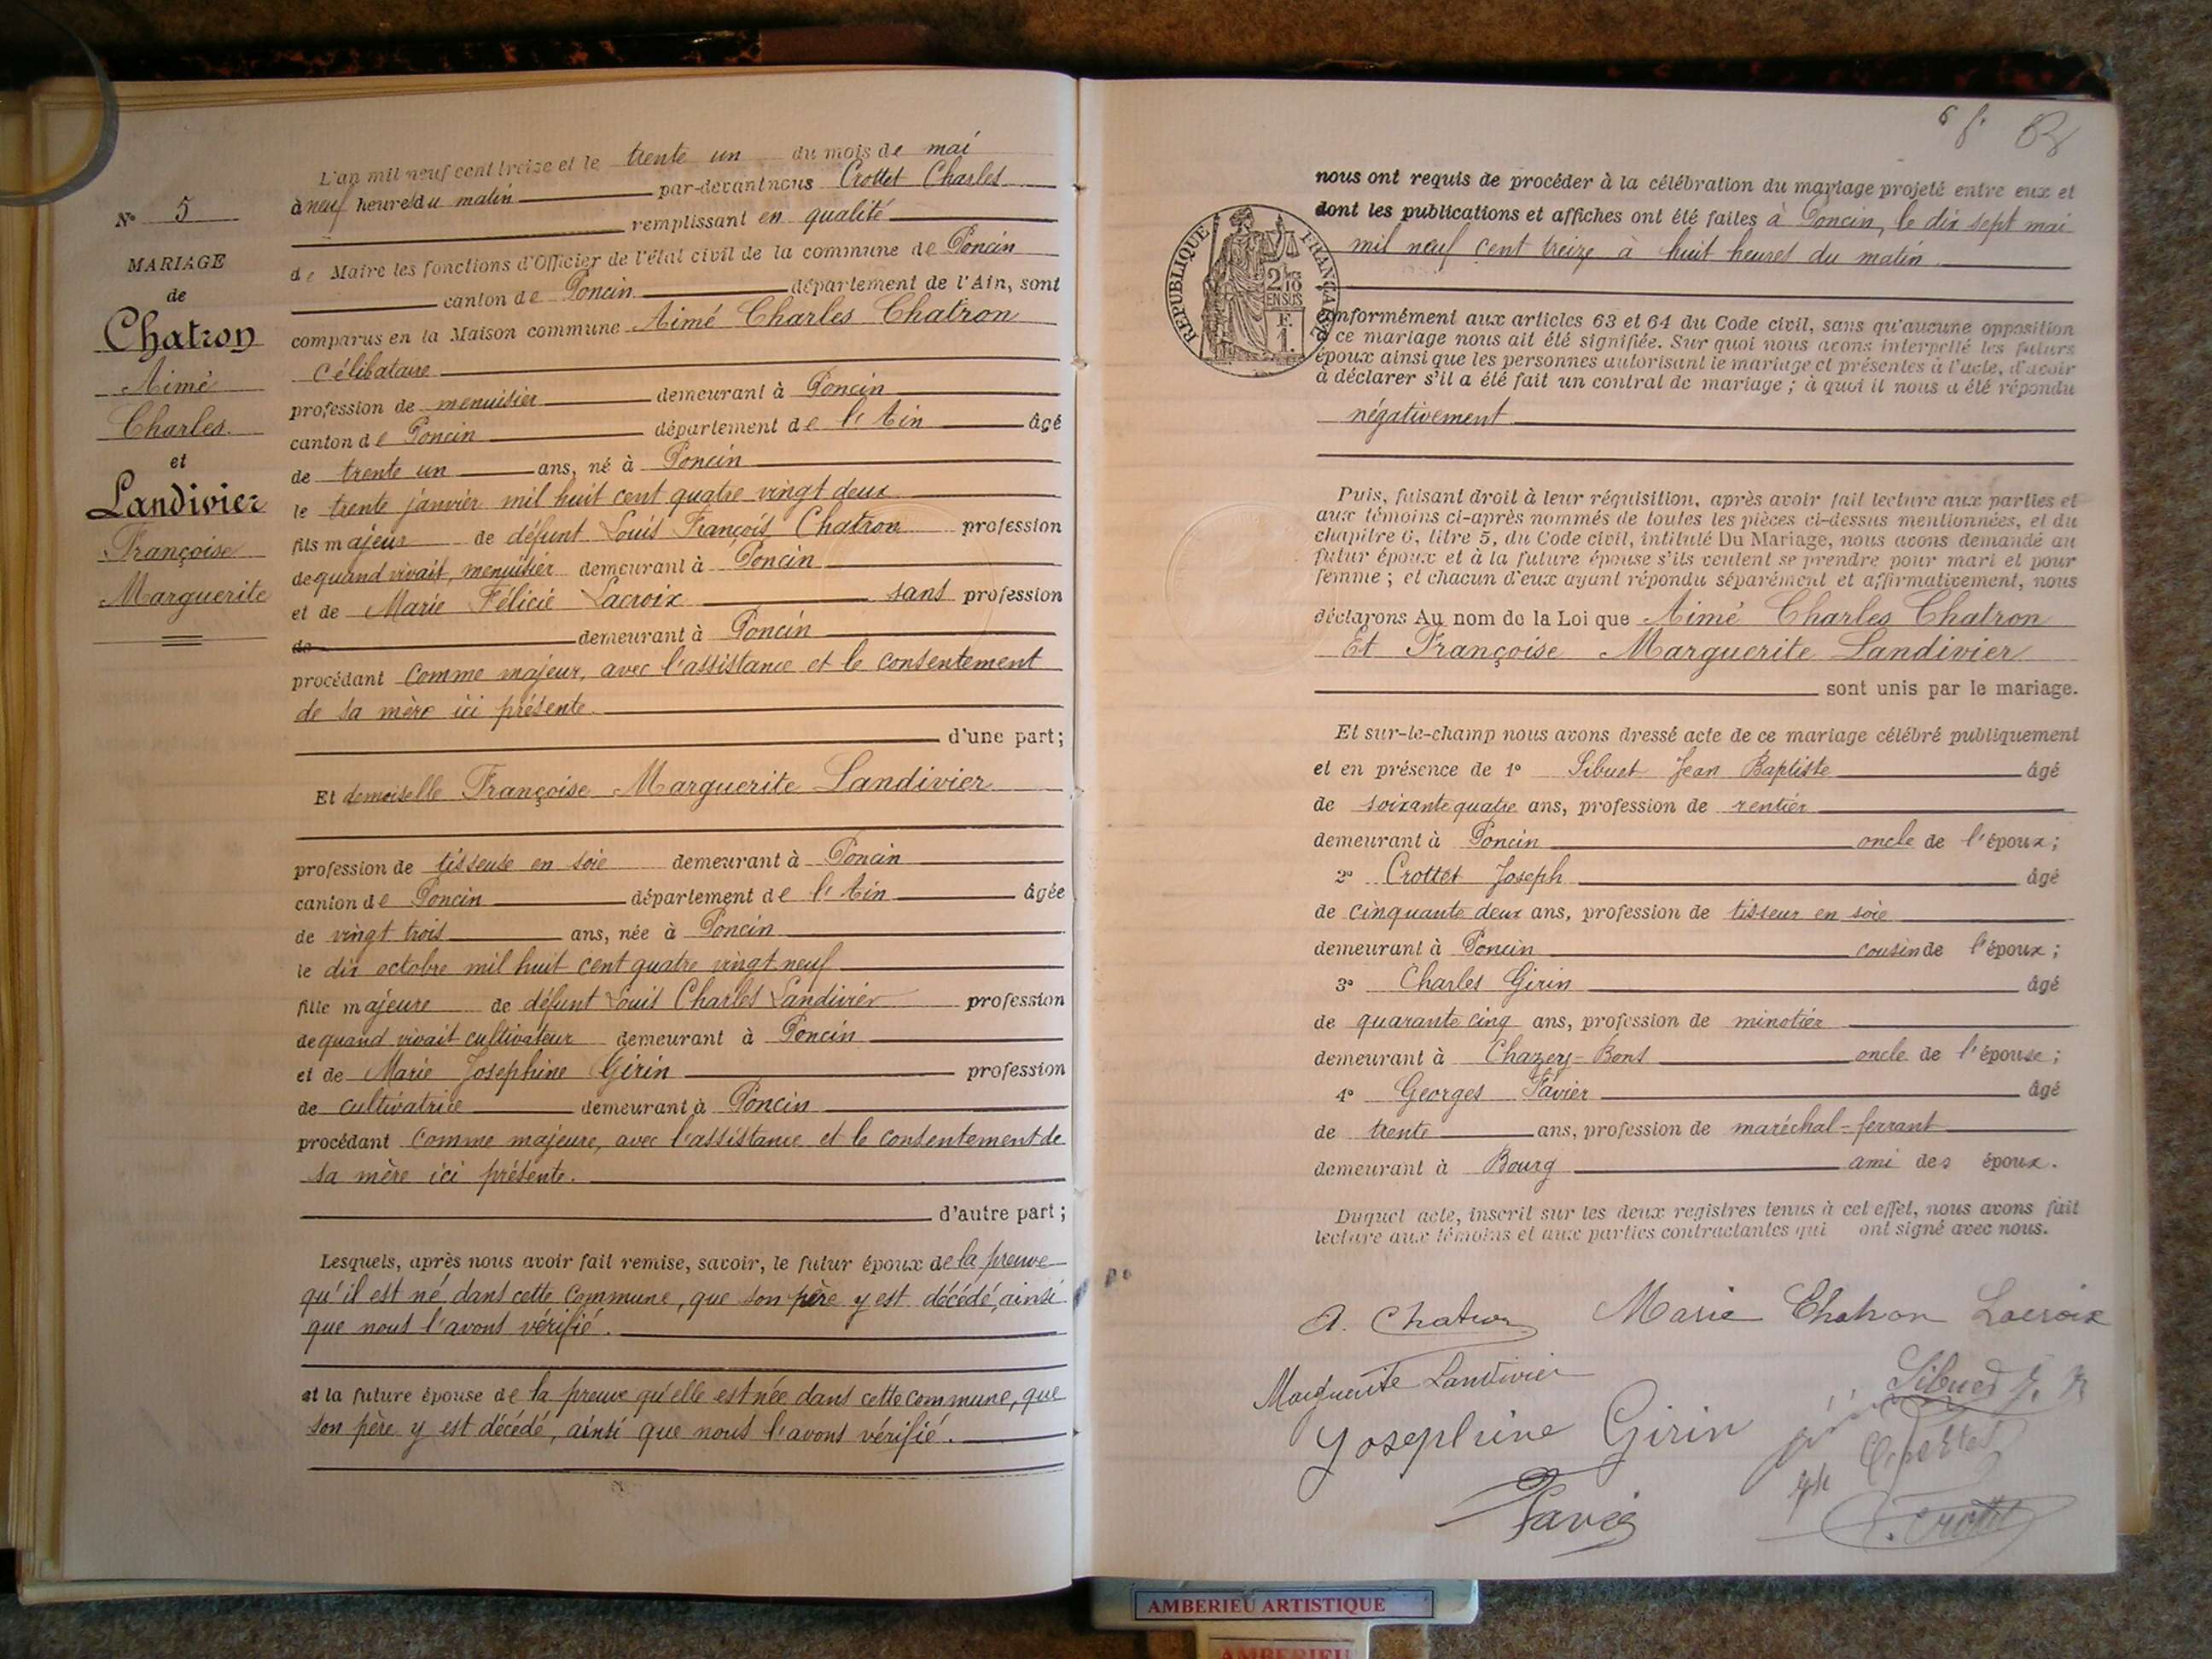 N° 5
MARIAGE
de
Chatron
Aimé
Charles
et
Landivier
Françoise
Marguerite
L'an mil neuf cent treize et le trente un du mois de mai
à neuf heure du matin par-devant nous Crottet Charles
remplissant en qualité
de Maire les fonctions d'Officier de l'état civil de la commune de Poncin
canton de Poncin département de l'Ain, sont
comparus en la Maison commune Aimé Charles Chatron
célibataire
profession de menuisier demeurant à Poncin
canton de Poncin département de l'Ain âgé
de trente un ans, né à Poncin
le trente janvier mil huit cent quatre vingt deux
fils majeur de défunt Louis François Chatron profession
de quand vivait, menuisier demeurant à Poncin
et de Marie Félicie Lacroix sans profession
de demeurant à Poncin
procédant comme majeur, avec l'assistance et le consentement
de sa mère ici présente.
d'une part;
Et demoiselle Françoise Marguerite Landivier
profession de tisseuse en soie demeurant à Poncin
canton de Poncin département de l'Ain âgée
de vingt trois ans, née à Poncin
le dix octobre mil huit cent quatre vingt neuf
fille majeure de défunt Louis Charles Landivier profession
de quand vivait cultivateur demeurant à Poncin
et de Marie Josephine Girin profession
de cultivatrice demeurant à Poncin
procédant comme majeure, avec l'assistance et le consentement de
sa mère ici présente.
d'autre part;
Lesquels, après nous avoir fait remise, savoir, le futur époux de la preuve
qu'il est né dans cette commune, que son père y est décédé, ainsi
que nous l'avons vérifié.
et la future épouse de la preuve qu'elle est née dans cette commune, que
son père y est décédé, ainsi que nous l'avons vérifié.
6 f.
nous ont requis de procéder à la célébration du mariage projeté entre eux et
dont les publications et affiches ont été faites à Poncin, le dix sept mai
mil neuf cent treize à huit heures du matin
RÉPUBLIQUE FRANÇAISE
2/10
EN SUS
F.
1.
conformément aux articles 63 et 64 du Code civil, sans qu'aucune opposition
à ce mariage nous ait été signifiée. Sur quoi nous avons interpellé les futurs
époux ainsi que les personnes autorisant le mariage et présentes à l'acte, d'avoir
à déclarer s'il a été fait un contrat de mariage; à quoi il nous a été répondu
négativement
Puis, faisant droit à leur réquisition, après avoir fait lecture aux parties et
aux témoins ci-après nommés de toutes les pièces ci-dessus mentionnées, et du
chapitre 6, titre 5, du Code civil, intitulé Du Mariage, nous avons demandé au
futur époux et à la future épouse s'ils veulent se prendre pour mari et pour
femme; et chacun d'eux ayant répondu séparément et affirmativement, nous
déclarons Au nom de la Loi que Aimé Charles Chatron
Et Françoise Marguerite Landivier
sont unis par le mariage.
Et sur-le-champ nous avons dressé acte de ce mariage célébré publiquement
et en présence de 1° Sibuet Jean Baptiste âgé
de soixante quatre ans, profession de rentier
demeurant à Poncin oncle de l'époux;
2° Crottet Joseph âgé
de cinquante deux ans, profession de tisseur en soie
demeurant à Poncin cousin de l'époux;
3° Charles Girin âgé
de quarante cinq ans, profession de minotier
demeurant à Chazey-Bons oncle de l'épouse;
4° Georges Favier âgé
de trente ans, profession de maréchal-ferrant
demeurant à Bourg ami des époux.
Duquel acte, inscrit sur les deux registres tenus à cet effet, nous avons fait
lecture aux témoins et aux parties contractantes qui ont signé avec nous.
A. Chatron Marie Chatron Lacroix
Marguerite Landivier
Sibuet J. B
Josephine Girin
Favier
C. Crottet
AMBERIEU ARTISTIQUE
AMBERIEU